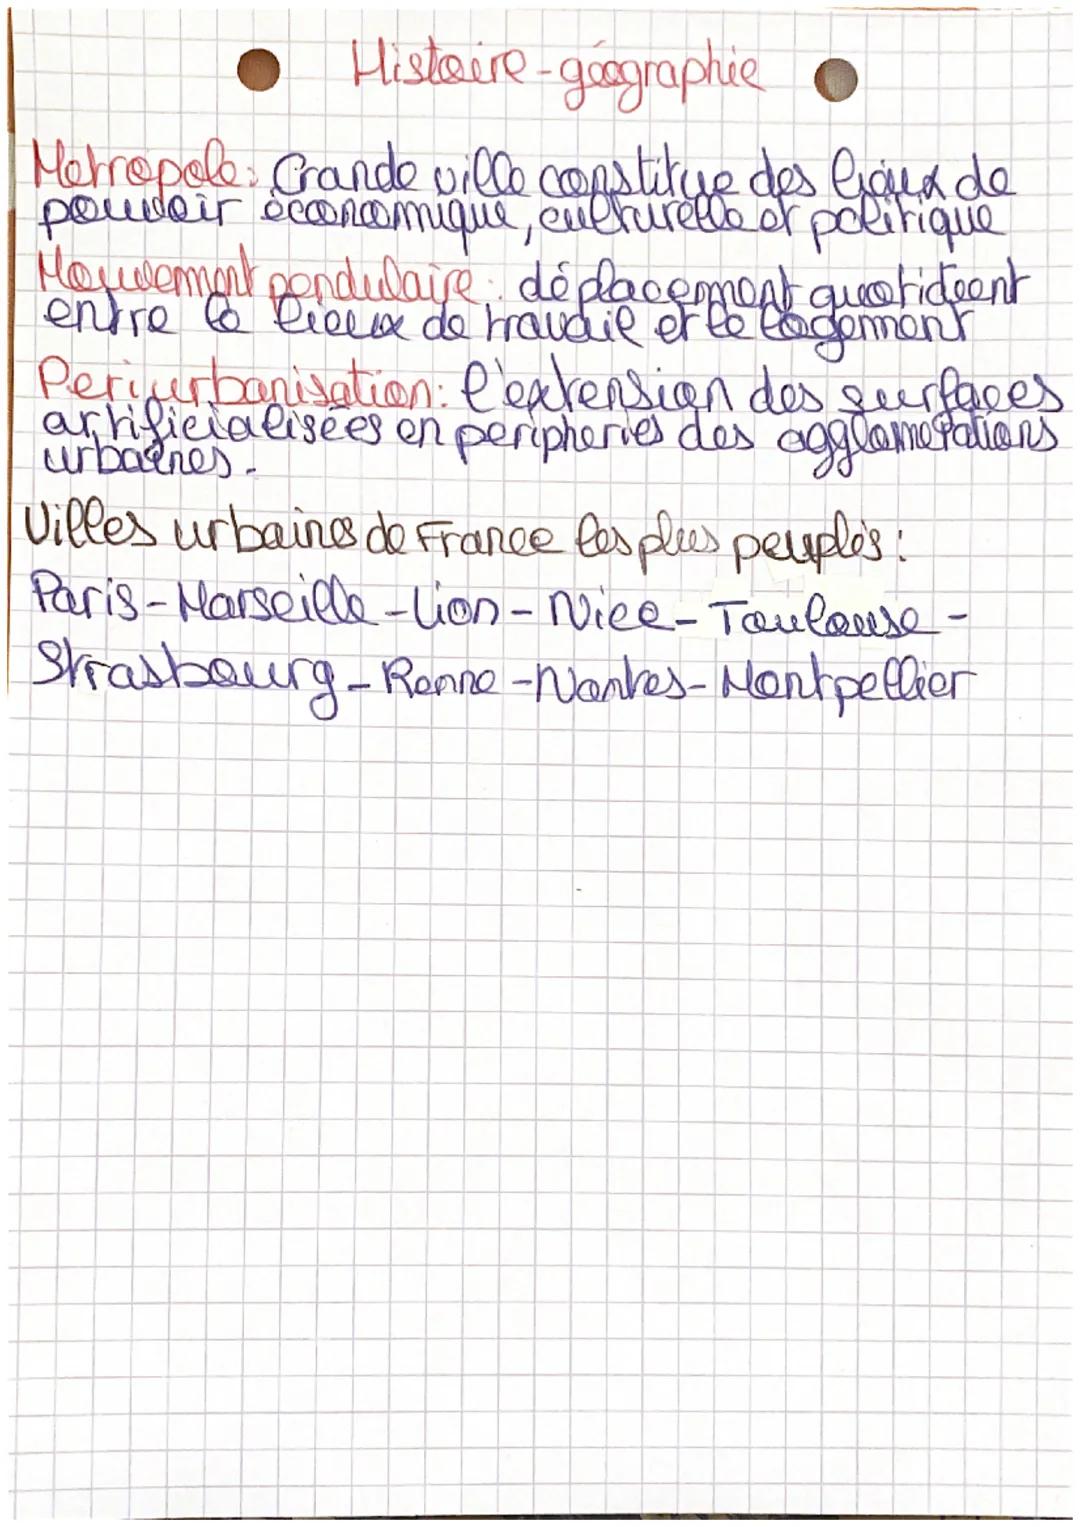 Histoire-géographie
Metropole: Grande ville constitue des lieux de
pouvoir économique, culturelle et politique
Mouvement pendulaire: déplacement quotidient
entre le lieux de travail et le logement
Periurbanisation: l'extension des surfaces
artificialisées en peripheries des agglomerations
urbaines.
Villes urbaines de France les plus peuplés :
Paris - Marseille - Lion - Nice - Toulouse -
Strasbourg - Renne - Nantes - Montpellier